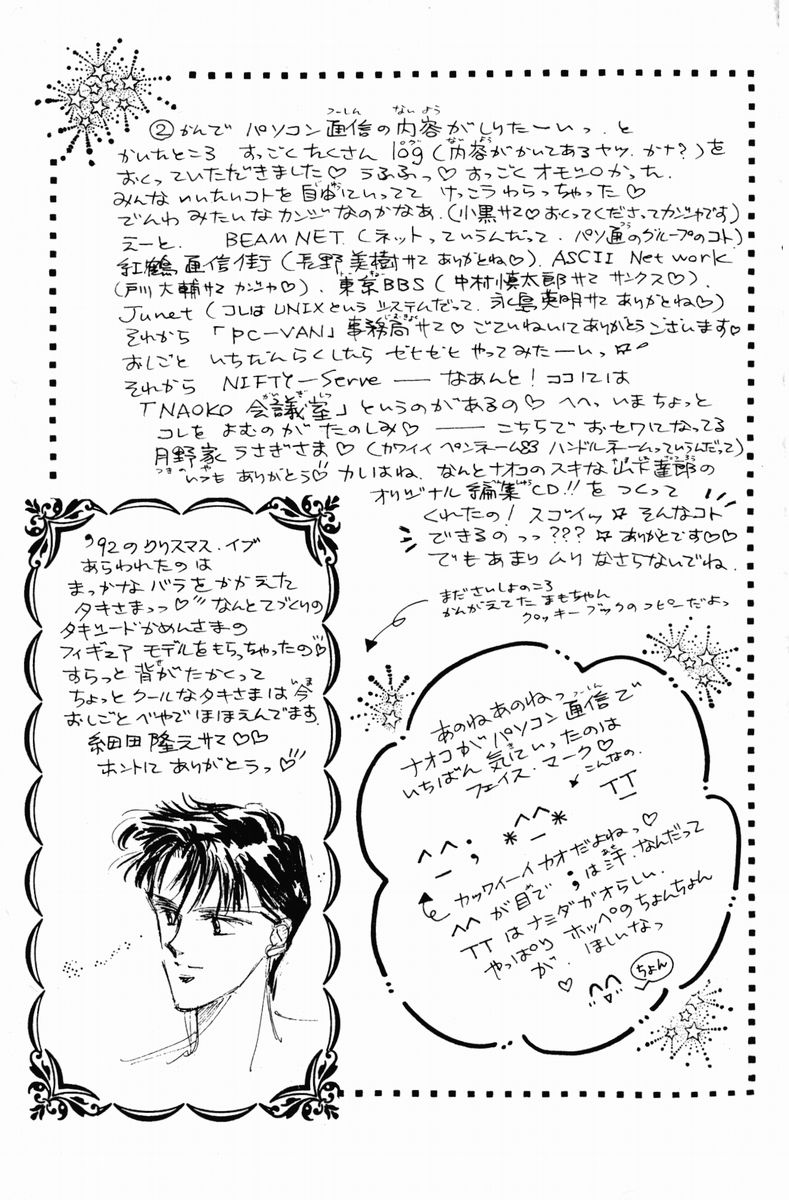 ②かんで パソコン通信の内容がしりたーいっ. と
つーしん ないよう
かいたところ すっごくたくさん log (内容がかいてあるヤツ. かナ?) を
ログ ないよう
おくっていただきました♡ うふふっ♡ すっごく オモシロかった.
みんな いいたいコトを自由にいってて けっこう わらっちゃった♡
でんわ みたいなカンジなのかなあ. (小黒サマ♡おくってくださってカンシャです)
えーと. BEAM NET. (ネットっていうんだって. パソ通のグループのコト)
紅鶴通信街 (長野美樹サマ ありがとね♡). ASCII Net work
(戸川大輔サマ カンシャ♡). 東京BBS (中村慎太郎サマ サンクス♡).
Junet (コレはUNIXという システムだって. 永島英明サマ ありがとね♡)
それから 「PC-VAN」事務局サマ♡ ごていねいにありがとうございます♡
じむきょく
おしごと いちだんらくしたら ゼヒゼヒ やってみたーいっ☆
それから NIFTY-Serve ── なあんと! ココには
「NAOKO 会議室」というのがあるの♡ へへっ いま ちょっと
かいぎしつ
コレを よむのが たのしみ♡ ── こちらで おセワになってる
月野家うさぎさま♡ (カワイイ ペンネーム ハンドルネームっていうんだって)
つきのや
いつも ありがとう♡ カレはね. なんとナオコのスキな 山下達郎の
オリジナル 編集 CD!! を つくって
くれたの! スゴイッ☆ そんなコト
できるのっっ??? ☆ ありがとです♡♡
でも あまり ムリ なさらないでね.
'92のクリスマス・イブ
あらわれたのは
まっかな バラをかかえた
タキさまっっ♡ なんとてづくりの
タキシードかめんさまの
フィギュア モデルをもらっちゃったの♡
すらっと 背がたかくって
ちょっとクールなタキさまは今
いま
おしごとべやでほほえんでます.
細田隆之サマ♡♡
ホントに ありがとうっ♡
まださいしょのころ
かんがえてた まもちゃん
クロッキーブックのコピーだよっ
あのねあのねっ
ナオコがパソコン通信で
つーしん
いちばん 気にいったのは
フェイス・マーク♡
こんなの.
TT
^_^; *^_^*
カッワイーイ カオだよねっ♡
^^が目で ;は汗.なんだって
あせ
TT はナミダガオらしい.
やっぱり ホッペのちょんちょん
が. ほしいなっ
♡
ちょん